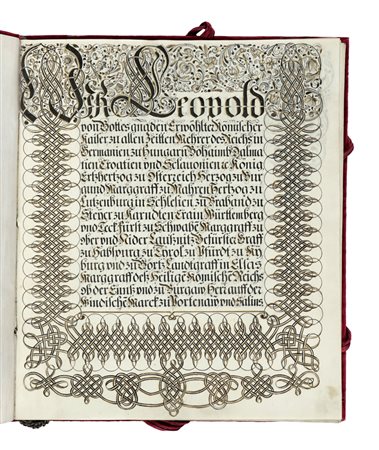 Wir Leopold
von Gottes gnaden Erwöhlter Römischer
Kaiser zu allen Zeitten Mehrer des Reichs in
Germanien zu Hungarn Böhaimb Dalma
tien Croatien und Sclauonien &c König
Ertzhertzog zu Össterreich Hertzog zu Bur
gund Marggraff zu Mähren Hertzog zu
Lutzenburg in Schlesien zu Braband zu
Steyer zu Karndten Crain Württemberg
und Teck Fürst zu Schwabe Marggraff zu
ober und Nider Laußnitz Gefürster Graff
zu Habspurg zu Tyrol zu Pfürdt zu Ky
burg und zu Görtz Landtgraff in Elsas
Marggraff deß Heilige Römische Reichs
ob der Ennß und zu Burgaw Herr auff der
Windische Marck zu Portenaw und Salins